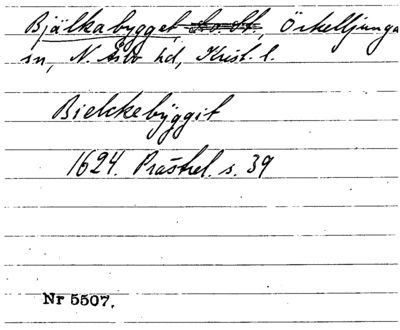 Bjälkabygget, Örkelljunga
sn, N. Åsbo hd, Krist. l.
Bielckebÿggit
1624. Prästrel. s. 39
Nr 5507.